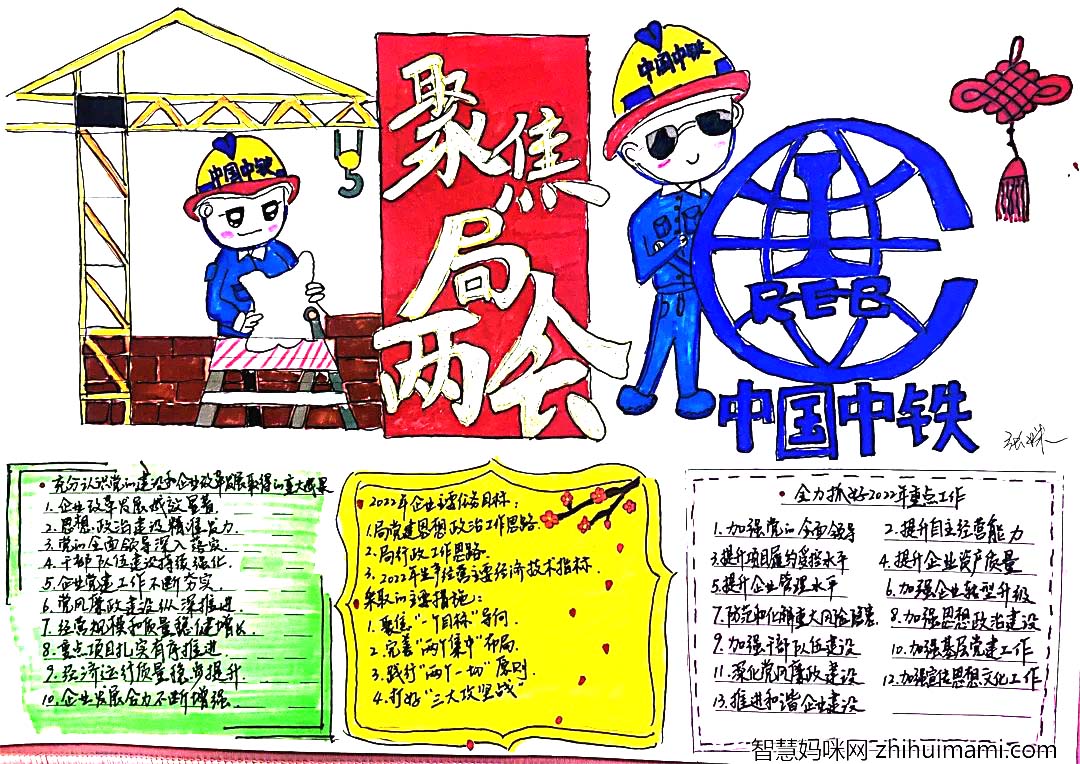 中国中铁
中国中铁
聚焦
局
两会
CREB
中国中铁
充分认识党的建设和企业改革发展取得的重大成果
1.企业改革发展成效显著.
2.思想政治建设精准发力.
3.党的全面领导深入落实.
4.干部队伍建设持续强化.
5.企业党建工作不断夯实.
6.党风廉政建设纵深推进.
7.经营规模和质量稳健增长.
8.重点项目扎实有序推进.
9.经济运行质量稳步提升.
10.企业发展合力不断增强.
2022年企业主要任务目标:
1.局党建思想政治工作思路.
2.局行政工作思路.
3.2022年生产经营主要经济技术指标.
采取的主要措施:
1.聚焦"一个目标"导向.
2.完善"两个集中"布局.
3.践行"两个一切"原则.
4.打好"三大攻坚战"
全力抓好2022年重点工作
1.加强党的全面领导 2.提升自主经营能力
3.提升项目履约受控水平 4.提升企业资产质量
5.提升企业管理水平 6.加强企业转型升级
7.防范和化解重大风险隐患 8.加强思想政治建设
9.加强干部队伍建设 10.加强基层党建工作
11.深化党风廉政建设 12.加强宣传思想文化工作
13.推进和谐企业建设
智慧妈咪网 zhihuimami.com